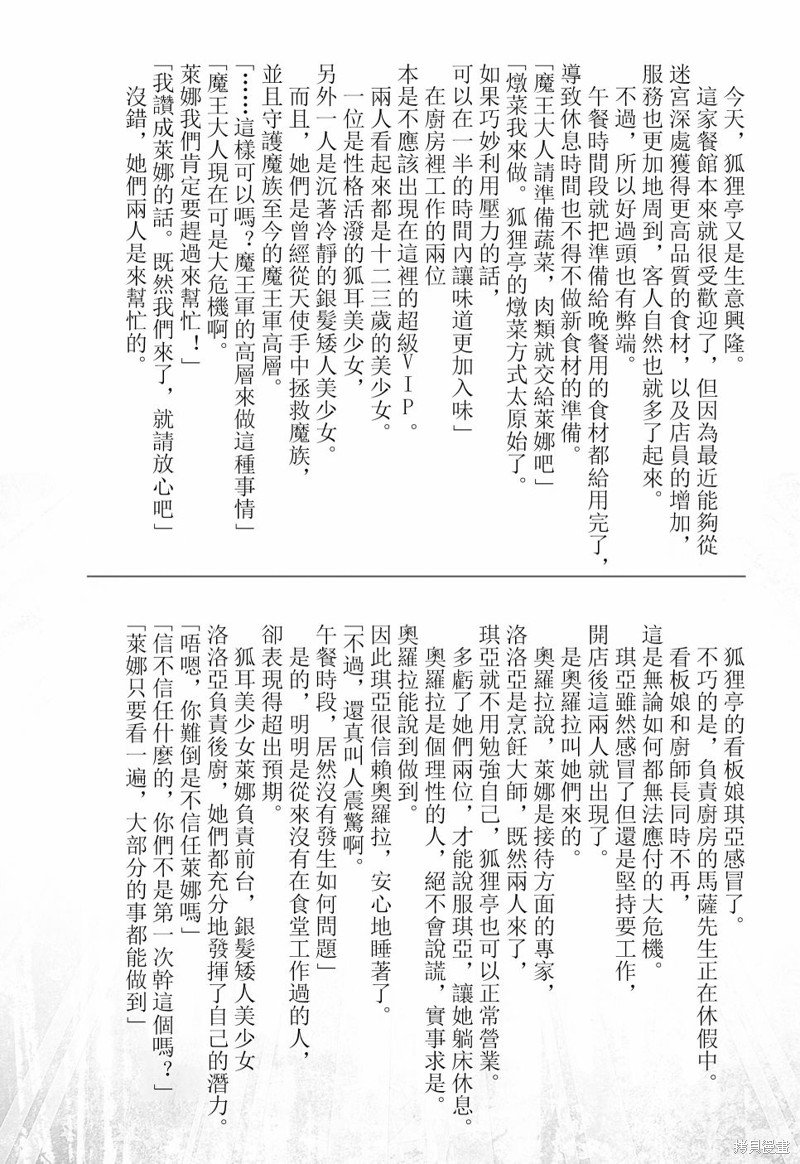 今天，狐狸亭又是生意興隆。
這家餐館本來就很受歡迎了，但因為最近能夠從
迷宮深處獲得更高品質的食材，以及店員的增加，
服務也更加地周到，客人自然也就多了起來。
不過，所以好過頭也有弊端。
午餐時間段就把準備給晚餐用的食材都給用完了，
導致休息時間也不得不做新食材的準備。
「魔王大人請準備蔬菜，肉類就交給萊娜吧」
「燉菜我來做。狐狸亭的燉菜方式太原始了。
如果巧妙利用壓力的話，
可以在一半的時間內讓味道更加入味」
在廚房裡工作的兩位
本是不應該出現在這裡的超級VIP。
兩人看起來都是十二三歲的美少女。
一位是性格活潑的狐耳美少女，
另外一人是沉著冷靜的銀髮矮人美少女。
而且，她們是曾經從天使手中拯救魔族，
並且守護魔族至今的魔王軍高層。
「……這樣可以嗎？魔王軍的高層來做這種事情」
「魔王大人現在可是大危機啊。
萊娜我們肯定要趕過來幫忙！」
「我讚成萊娜的話。既然我們來了，就請放心吧」
沒錯，她們兩人是來幫忙的。
狐狸亭的看板娘琪亞感冒了。
不巧的是，負責廚房的馬薩先生正在休假中。
看板娘和廚師長同時不再，
這是無論如何都無法應付的大危機。
琪亞雖然感冒了但還是堅持要工作，
開店後這兩人就出現了。
是奧羅拉叫她們來的。
奧羅拉說，萊娜是接待方面的專家，
洛洛亞是烹飪大師，既然兩人來了，
琪亞就不用勉強自己，狐狸亭也可以正常營業。
多虧了她們兩位，才能說服琪亞，讓她躺床休息。
奧羅拉是個理性的人，絕不會說謊，實事求是。
奧羅拉能說到做到。
因此琪亞很信賴奧羅拉，安心地睡著了。
「不過，還真叫人震驚啊。
午餐時段，居然沒有發生如何問題」
是的，明明是從來沒有在食堂工作過的人，
卻表現得超出預期。
狐耳美少女萊娜負責前台，銀髮矮人美少女
洛洛亞負責後廚，她們都充分地發揮了自己的潛力。
「唔嗯，你難倒是不信任萊娜嗎」
「信不信任什麼的，你們不是第一次幹這個嗎？」
「萊娜只要看一遍，大部分的事都能做到」
拷貝漫畫